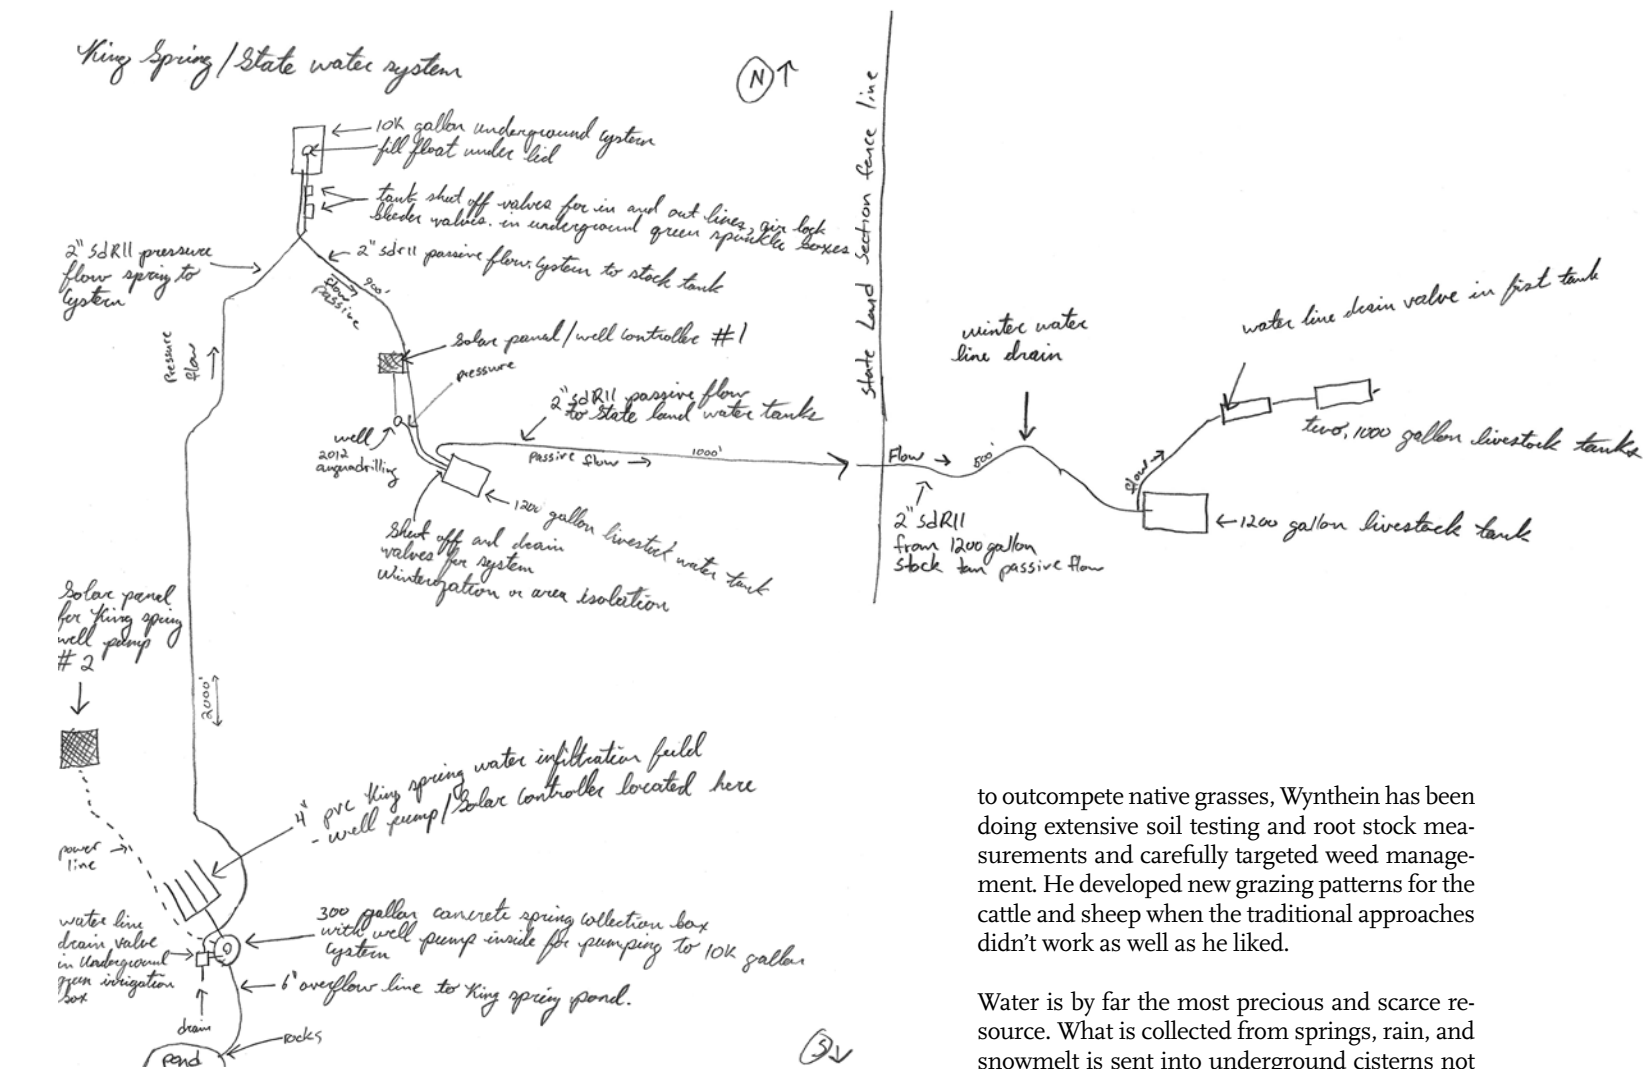 King Spring/State water system
N
10K gallon underground cystern
fill float under lid
tank shut off valves for in and out lines, air lock
bleeder valves. in underground green sprinkler boxes
2" sdR11 pressure
flow spring to
cystern
2" sdr11 passive flow. cystern to stock tank
900'
flow
passive
Pressure
flow
Solar panel/well controller #1
pressure
2" sdR11 passive flow
to State land water tanks
well
2012
passive flow
1000'
1200 gallon livestock water tank
Shut off and drain
valves for system
winterization or area isolation
State Land Section fence line
Flow
500'
winter water
line drain
water line drain valve in first tank
two, 1000 gallon livestock tanks
flow
1200 gallon livestock tank
2" sdR11
from 1200 gallon
stock tan passive flow
Solar panel
for King spring
well pump
# 2
2000'
4" pvc King spring water infiltration feild
- well pump/Solar controller located here
power
line
300 gallon concrete spring collection box
with well pump inside for pumping to 10K gallon
cystern
water line
drain valve
in underground
green irrigation
box
6" overflow line to King spring pond.
drain
rocks
pond
S
to outcompete native grasses, Wynthein has been
doing extensive soil testing and root stock mea-
surements and carefully targeted weed manage-
ment. He developed new grazing patterns for the
cattle and sheep when the traditional approaches
didn't work as well as he liked.
Water is by far the most precious and scarce re-
source. What is collected from springs, rain, and
snowmelt is sent into underground cisterns not